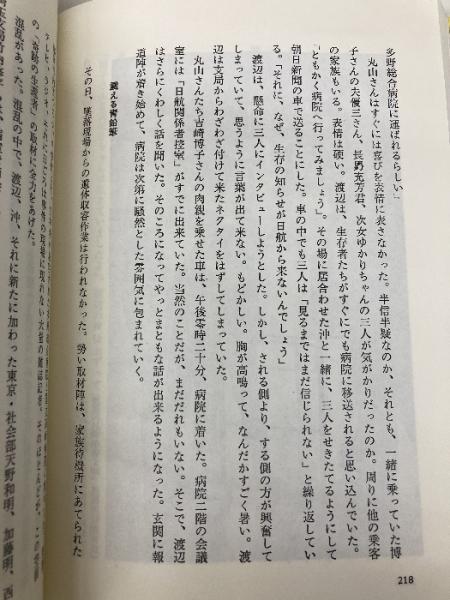 多野総合病院に運ばれるらしい」
丸山さんはすぐには喜びを表情に表さなかった。半信半疑なのか、それとも、一緒に乗っていた博
子さんの夫優三さん、長男充芳君、次女ゆかりちゃんの三人が気がかりだったのか。周りに他の乗客
の家族もいる。表情は硬い。渡辺は、生存者たちがすぐにでも病院に移送されると思い込んでいた。
「ともかく病院へ行ってみましょう」。その場に居合わせた沖と一緒に、三人をせきたてるようにして
朝日新聞の車で送ることにした。車の中でも三人は「見るまではまだ信じられない」と繰り返してい
る。「それに、なぜ、生存の知らせが日航から来ないんでしょう」
渡辺は、懸命に三人にインタビューしようとした。しかし、される側より、する側の方が興奮して
しまっていて、思うように言葉が出て来ない。もどかしい。胸が高鳴って、なんだかすごく暑い。渡
辺は支局からわざわざ付けて来たネクタイをはずしてしまっていた。
丸山さんたち吉崎博子さんの肉親を乗せた車は、午後零時二十分、病院に着いた。病院二階の会議
室には「日航関係者控室」がすでに出来ていた。当然のことだが、まだだれもいない。そこで、渡辺
はさらにくわしく話を聞いた。そのころになってやっとまともな話が出来るようになった。玄関に報
道陣が着き始めて、病院は次第に騒然とした雰囲気に包まれていく。
震える青鉛筆
その日、墜落現場からの遺体収容作業は行われなかった。勢い取材陣は、家族待機所にあてられた
の「奇跡の生還者」の取材に全力をあげた。
混乱があった。混乱の中で、渡辺、沖、それに新たに加わった東京・社会部天野和明、加藤明、西
218